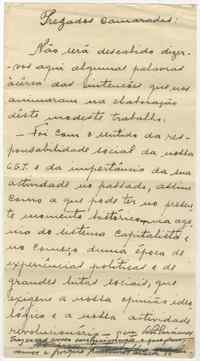 Prezados Camaradas:
Não será descabido dizer-
-vos aqui algumas palavras
ácerca das intenções que nos
animaram na elaboração
deste modesto trabalho.
— Foi com o sentido da res-
ponsabilidade social da nossa
C.G.T. e da importância da sua
actividade no passado, assim
como a que pode ter no presen-
te momento histórico, na ago-
nia do sistema capitalista e
no começo duma época de
experiências políticas e de
grandes lutas sociais, que
exigem a nossa opinião ideo-
lógica e a nossa actividade
revolucionária —